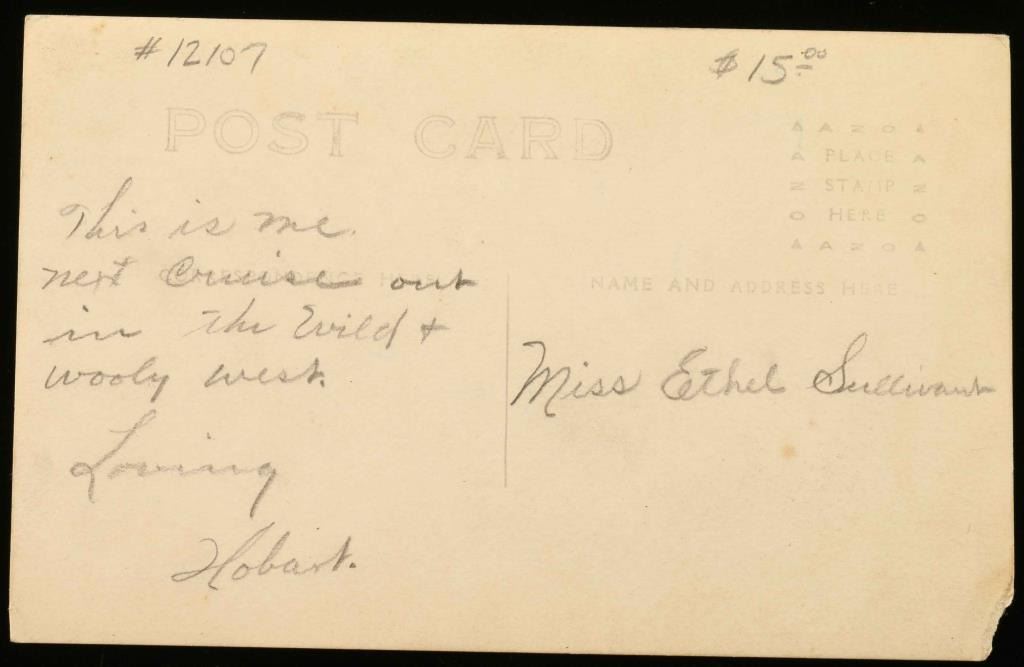 #12107
$15.00
POST CARD
AZO
PLACE
STAMP
HERE
AZO
This is me
next Cruise out
in the Wild +
wooly west.
Loving
Hobart.
CORRESPONDENCE HERE
NAME AND ADDRESS HERE
Miss Ethel Sullivant